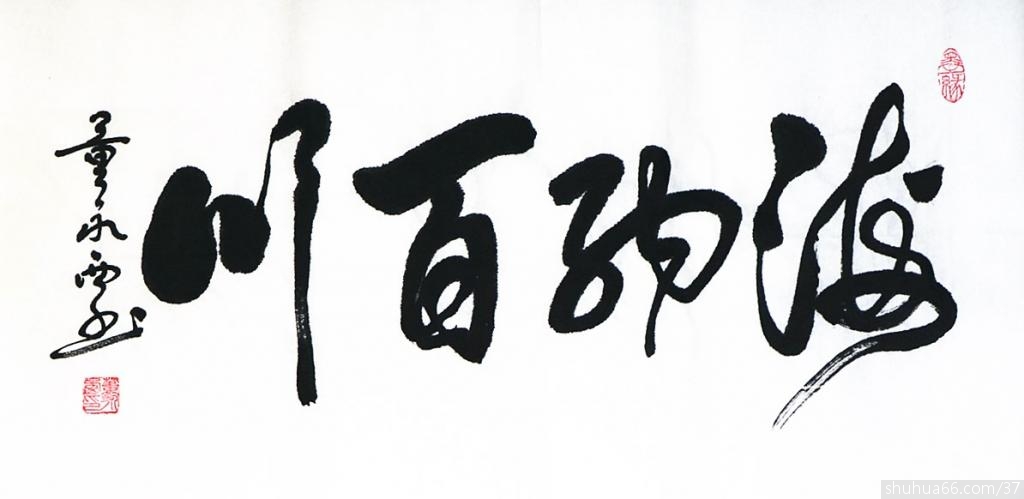 海纳百川
shuhua66.com/37